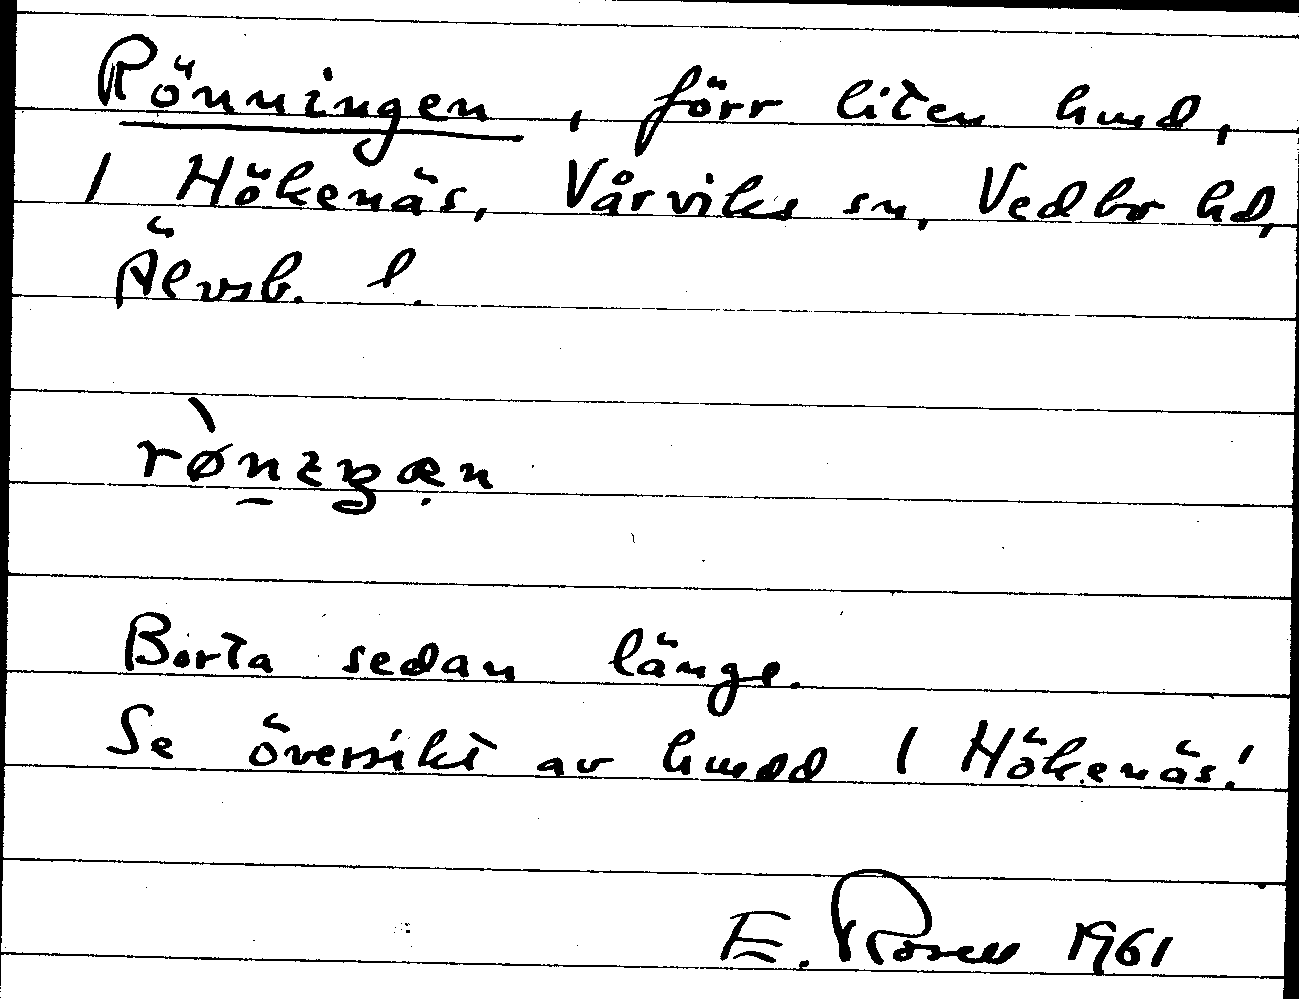 Rönningen, förr liten hmd,
1 Hökenäs, Vårviks sn, Vedbo hd,
Älvsb. l.
Borta sedan länge.
Se översikt av hmdd 1 Hökenäs!
E. Rosell 1961